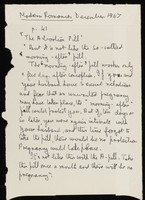 Modern Romances December 1967
p. 61
"The Abortion Pill"
" But it's not like the so-called
'morning-after' pill.
The 'morning-after' pill works only
a few days after conception. If you and
your husband have sexual relations
and fear that an unwanted pregnancy
may have taken place, the 'morning-after
pill could protect you. But if, ten days or
so later you were again intimate with
your husband, and this time forgot to
take the pill, there would be no protection.
Pregnancy could take place.
It's not like this with the A-pill. Take
this pill once a month and there will be no
pregnancy."